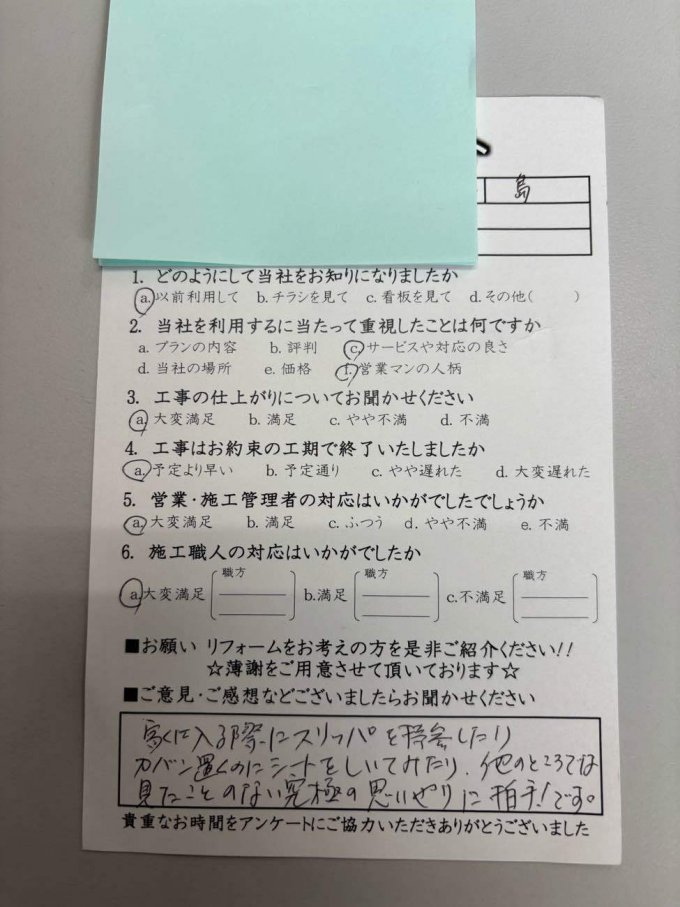 島
1. どのようにして当社をお知りになりましたか
a.以前利用して b.チラシを見て c.看板を見て d.その他( )
2. 当社を利用するに当たって重視したことは何ですか
a.プランの内容 b.評判 c.サービスや対応の良さ
d.当社の場所 e.価格 f.営業マンの人柄
3. 工事の仕上がりについてお聞かせください
a.大変満足 b.満足 c.やや不満 d.不満
4. 工事はお約束の工期で終了いたしましたか
a.予定より早い b.予定通り c.やや遅れた d.大変遅れた
5. 営業・施工管理者の対応はいかがでしたでしょうか
a.大変満足 b.満足 c.ふつう d.やや不満 e.不満
6. 施工職人の対応はいかがでしたか
a.大変満足 職方 b.満足 職方 c.不満足 職方
■お願い リフォームをお考えの方を是非ご紹介ください!!
☆薄謝をご用意させて頂いております☆
■ご意見・ご感想などございましたらお聞かせください
に入る際にスリッパを持参したり
カバン置くのにシートをしいてみたり、他のところでは
見たことのない究極の思いやりに拍手!です。
貴重なお時間をアンケートにご協力いただきありがとうございました